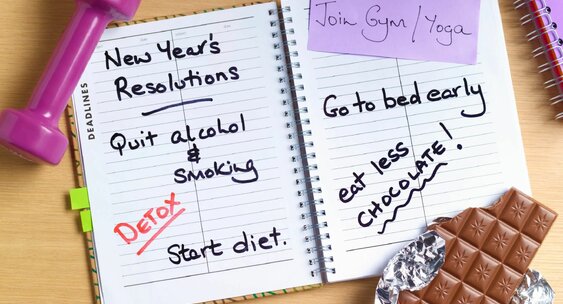 DEADLINES
New Year's
Resolutions
Quit alcohol
&
smoking
DETOX
Start diet.
Join Gym/Yoga
Go to bed early
eat less
CHOCOLATE!